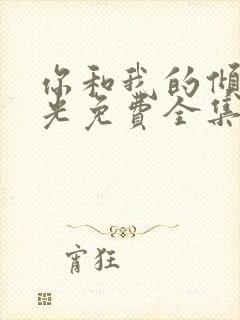 你和我的倾
光免费全集
宵狂